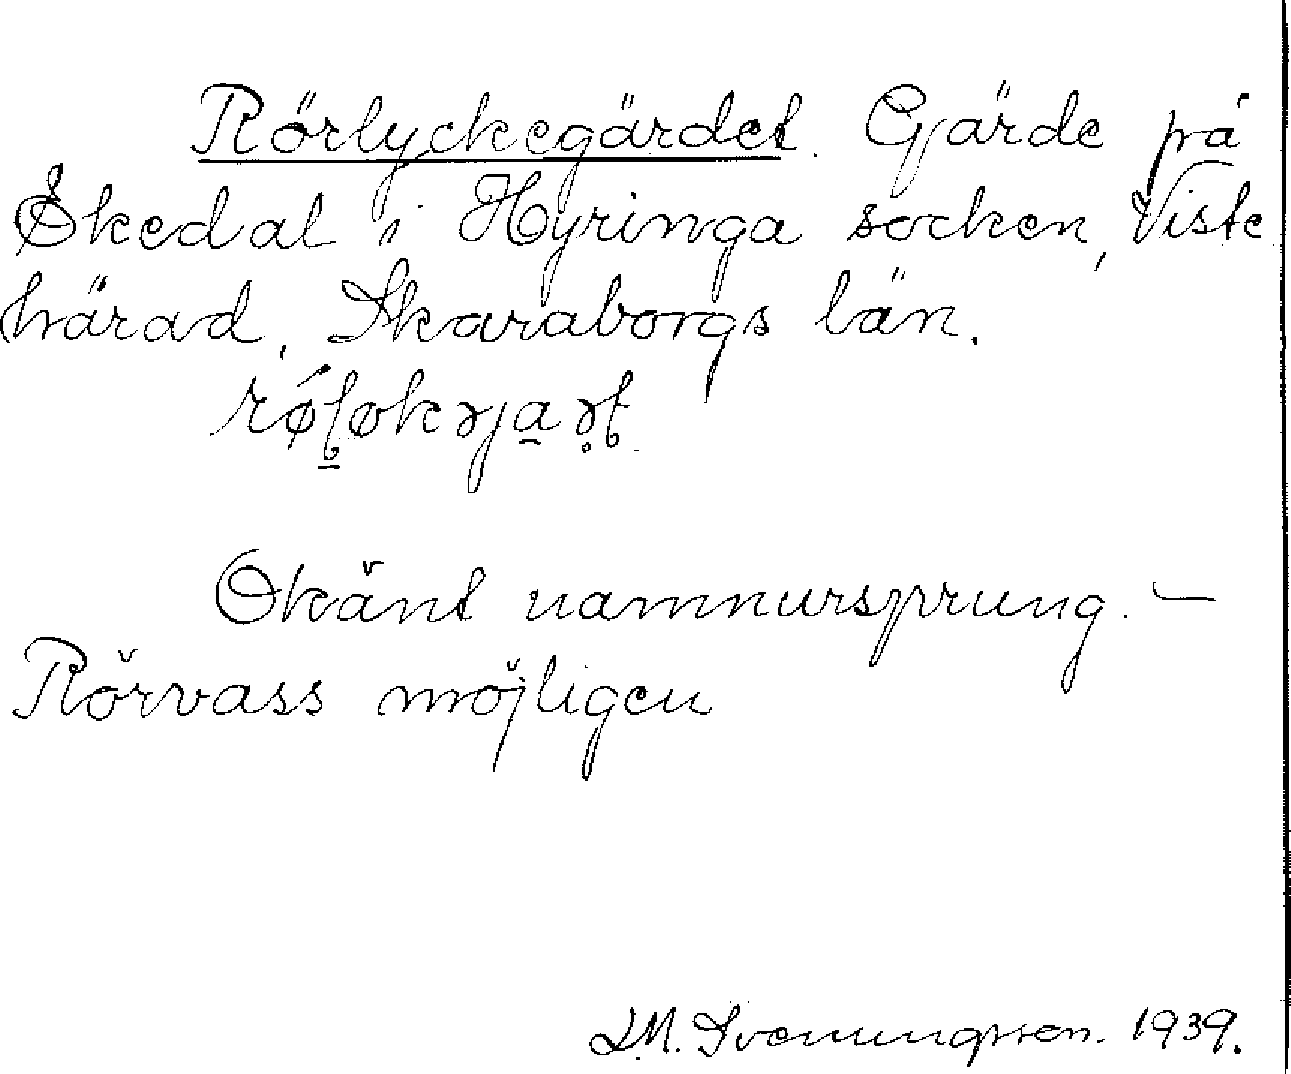 Rörlyckegärdet. Gärde på
Skedal i Hyringa socken, Viste
härad, Skaraborgs län.
Okänt namnursprung. –
Rörvass möjligen
J.M. Svenungsson. 1939.